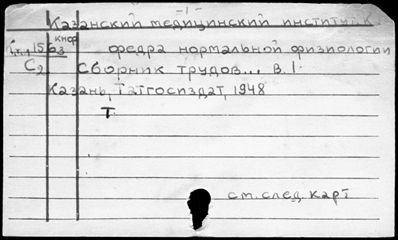 -1-
Казанский медицинский институт. К
кнор
1563 федра нормальной физиологии
С2 Сборник трудов... в.1.
Казань, Татгосиздат, 1948
Т.
см. след. карт